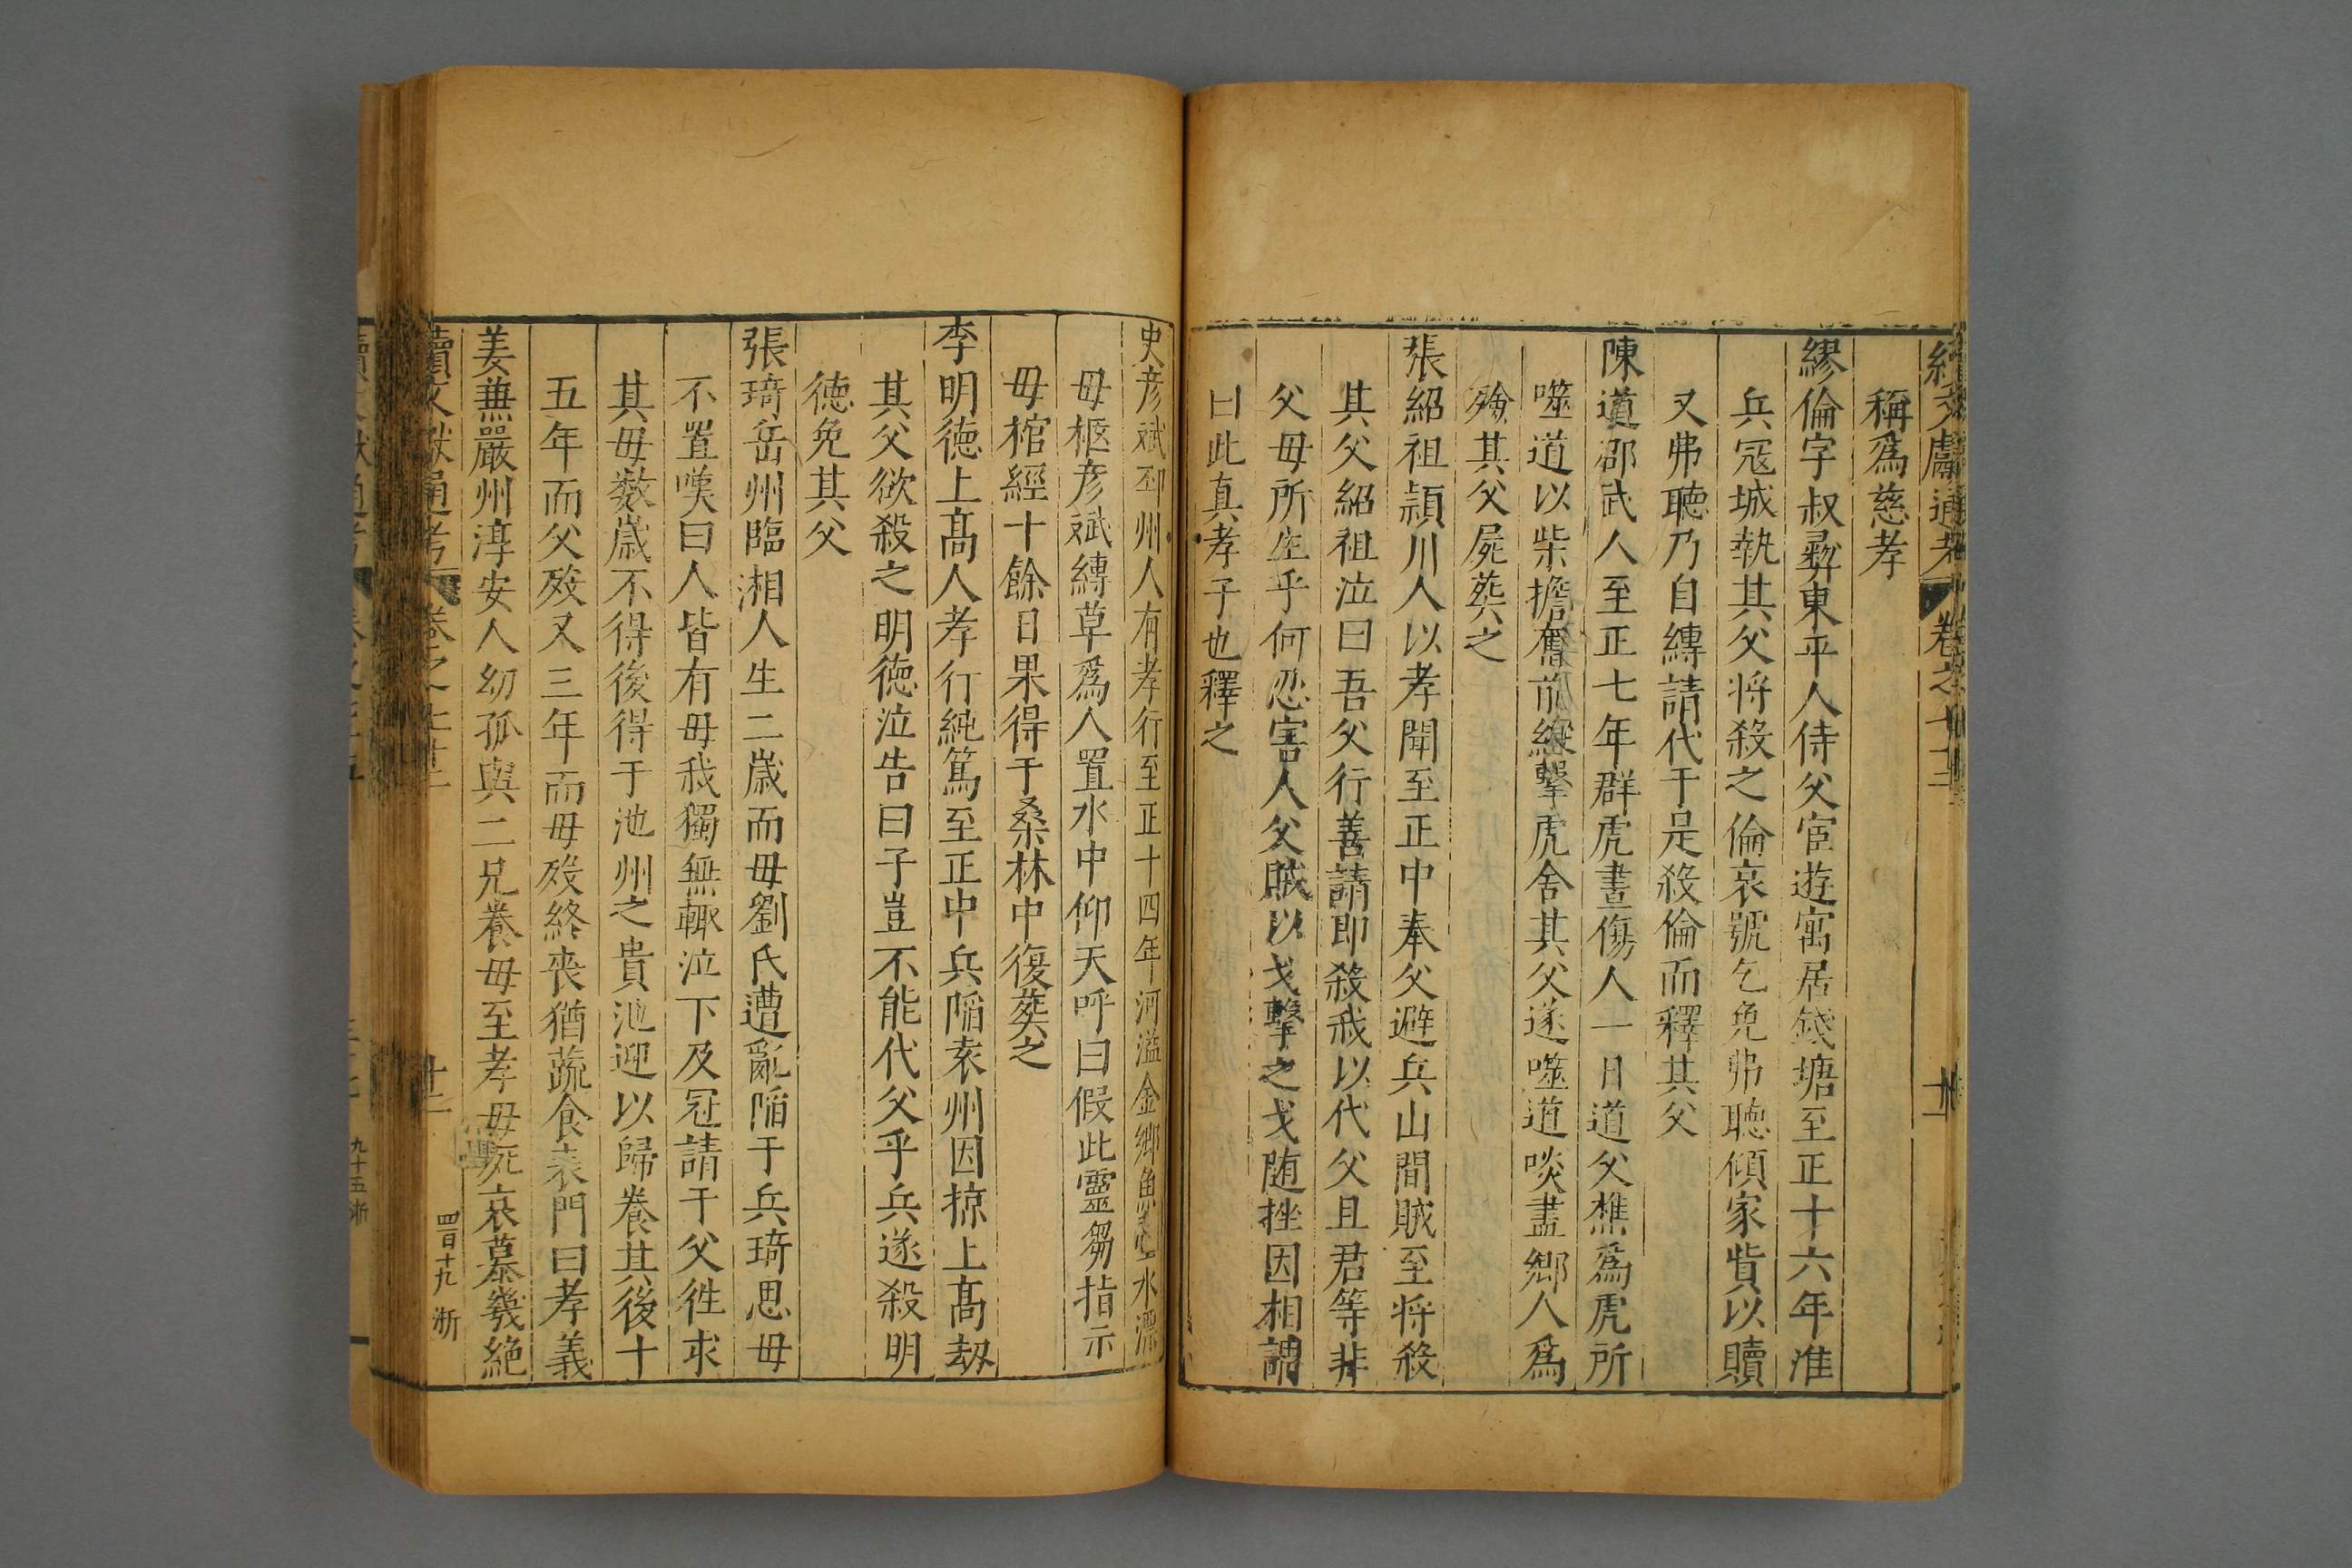 續文獻通考 卷之七十三 十一
稱爲慈孝
繆倫字叔彛東平人侍父宦遊寓居錢塘至正十六年淮
兵冦城執其父将殺之倫哀號乞免弗聽傾家貲以贖
又弗聽乃自縛請代于是殺倫而釋其父
陳道邵武人至正七年群虎晝傷人一日道父樵爲虎所
噬道以柴擔奮前縱擊虎舍其父遂噬道啖盡鄉人爲
殮其父屍葬之
張紹祖潁川人以孝聞至正中奉父避兵山間賊至将殺
其父紹祖泣曰吾父行善請即殺我以代父且君等非
父毋所生乎何忍害人父賊以戈擊之戈随挫因相謂
曰此真孝子也釋之
史彦斌邳州人有孝行至正十四年河溢金鄉魚臺水漂
毋柩彦斌縛草爲人置水中仰天呼曰假此靈芻指示
毋棺經十餘日果得于桑林中復葬之
李明徳上髙人孝行純篤至正中兵陥袁州因掠上髙刼
其父欲殺之明徳泣告曰子豈不能代父乎兵遂殺明
徳免其父
張琦岳州臨湘人生二歳而毋劉氏遭亂陥于兵琦思毋
不置嘆曰人皆有毋我獨無輙泣下及冠請于父徃求
其毋数歳不得後得于池州之貴池迎以歸養其後十
五年而父殁又三年而毋殁終丧猶蔬食表門曰孝義
姜兼嚴州淳安人㓜孤與二兄養毋至孝毋死哀慕㡬絶
續文獻通考 卷之七十三 十二 四百十九 浙
九十五浙